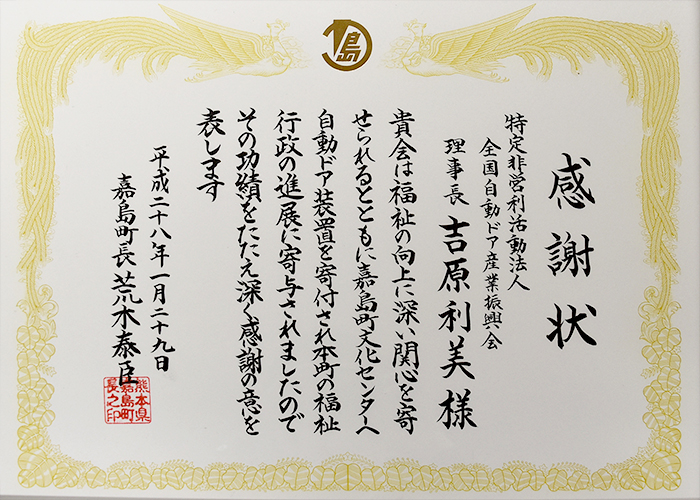 感謝状
特定非営利活動法人
全国自動ドア産業振興会
理事長 吉原利美様
貴会は福祉の向上に深い関心を寄
せられるとともに嘉島町文化センターへ
自動ドア装置を寄付され本町の福祉
行政の進展に寄与されましたので
その功績をたたえ深く感謝の意を
表します
平成二十八年一月二十九日
嘉島町長 荒木泰臣
熊本県
嘉島町
長之印
島